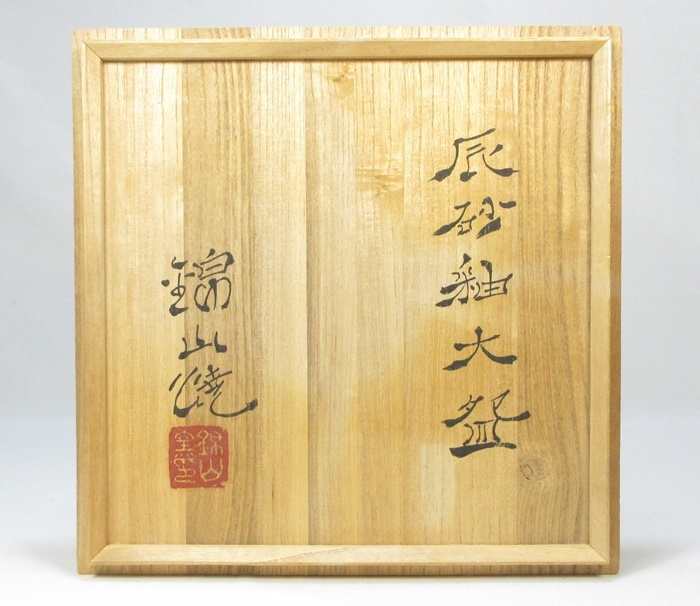 辰砂釉大盌
錦山焼
錦山